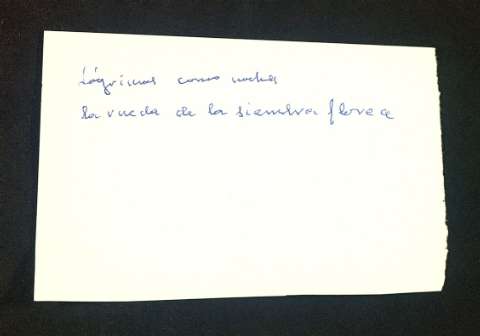 Lágrimas como noches
la rueda de la siembra florece